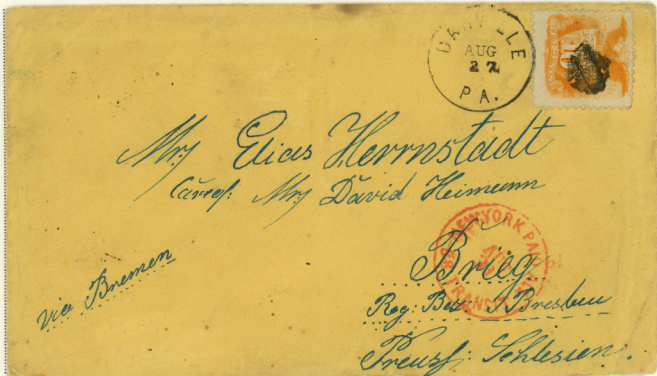 DANVILLE
AUG
27
PA.
Mrs Elias Herrnstadt
Careof: Mrs David Heimann
NEW YORK PAID
TRANSIT
Brieg
via Bremen
Reg: Bez: Breslau
Preuss: Schlesien.